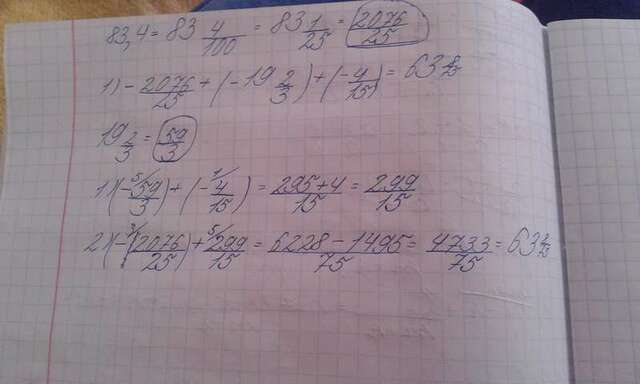 83,4 = 83 4/100 = 83 1/25 = 2076/25
1) - 2076/25 + (-19 2/3) + (-4/15) = 63
19 2/3 = 59/3
1) (- 5/ 59/3) + (- 1/ 4/15) = 295+4/15 = 299/15
2) (- 3/ 2076/25) + 5/ 299/15 = 6228-1495/75 = 4733/75 = 63